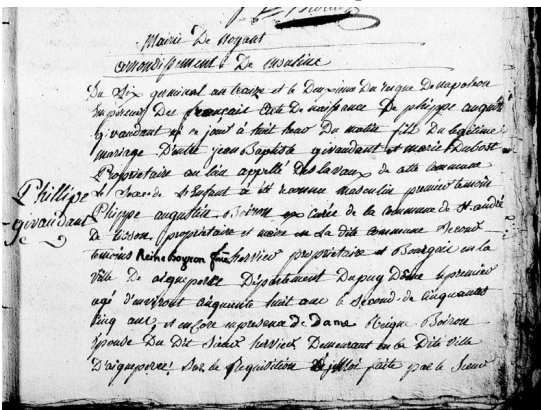 Mairie De nogant
arrondissement De moulins
Du dix germinal an treize et le Deuxieme Du reigne De napoleon
Empereur Des français Acte De naissance De phlippe auguste
givaudant né ce jour à huit heur Du matin fils Du legitime
mariage D'entre jean Baptiste givaudant et marie Dubost
Propriétaire au lieu appellé Deslavaux de cette commune
Le Sexe de L'enfant à été reconnu masculin premier temoin
Phillipe
givaudant
Phlippe augustin Boiron ex curée de la commune de St. andré
De propriétaire et maire en La dite commune Second
temoins Reine boyron fme hervier propriétaire et Bourgois en la
ville De aigueperse Département Du puy Dôme le premier
agé d'environt cinquente huit ans le Second de cinquante
cinq ans, et encore en presence de Dame Reigne Boiron
Epouse Du Dit Sieur hervier Demeurant en La Dite ville
D'aigueperse Sur la Requisition faite par le Sieur